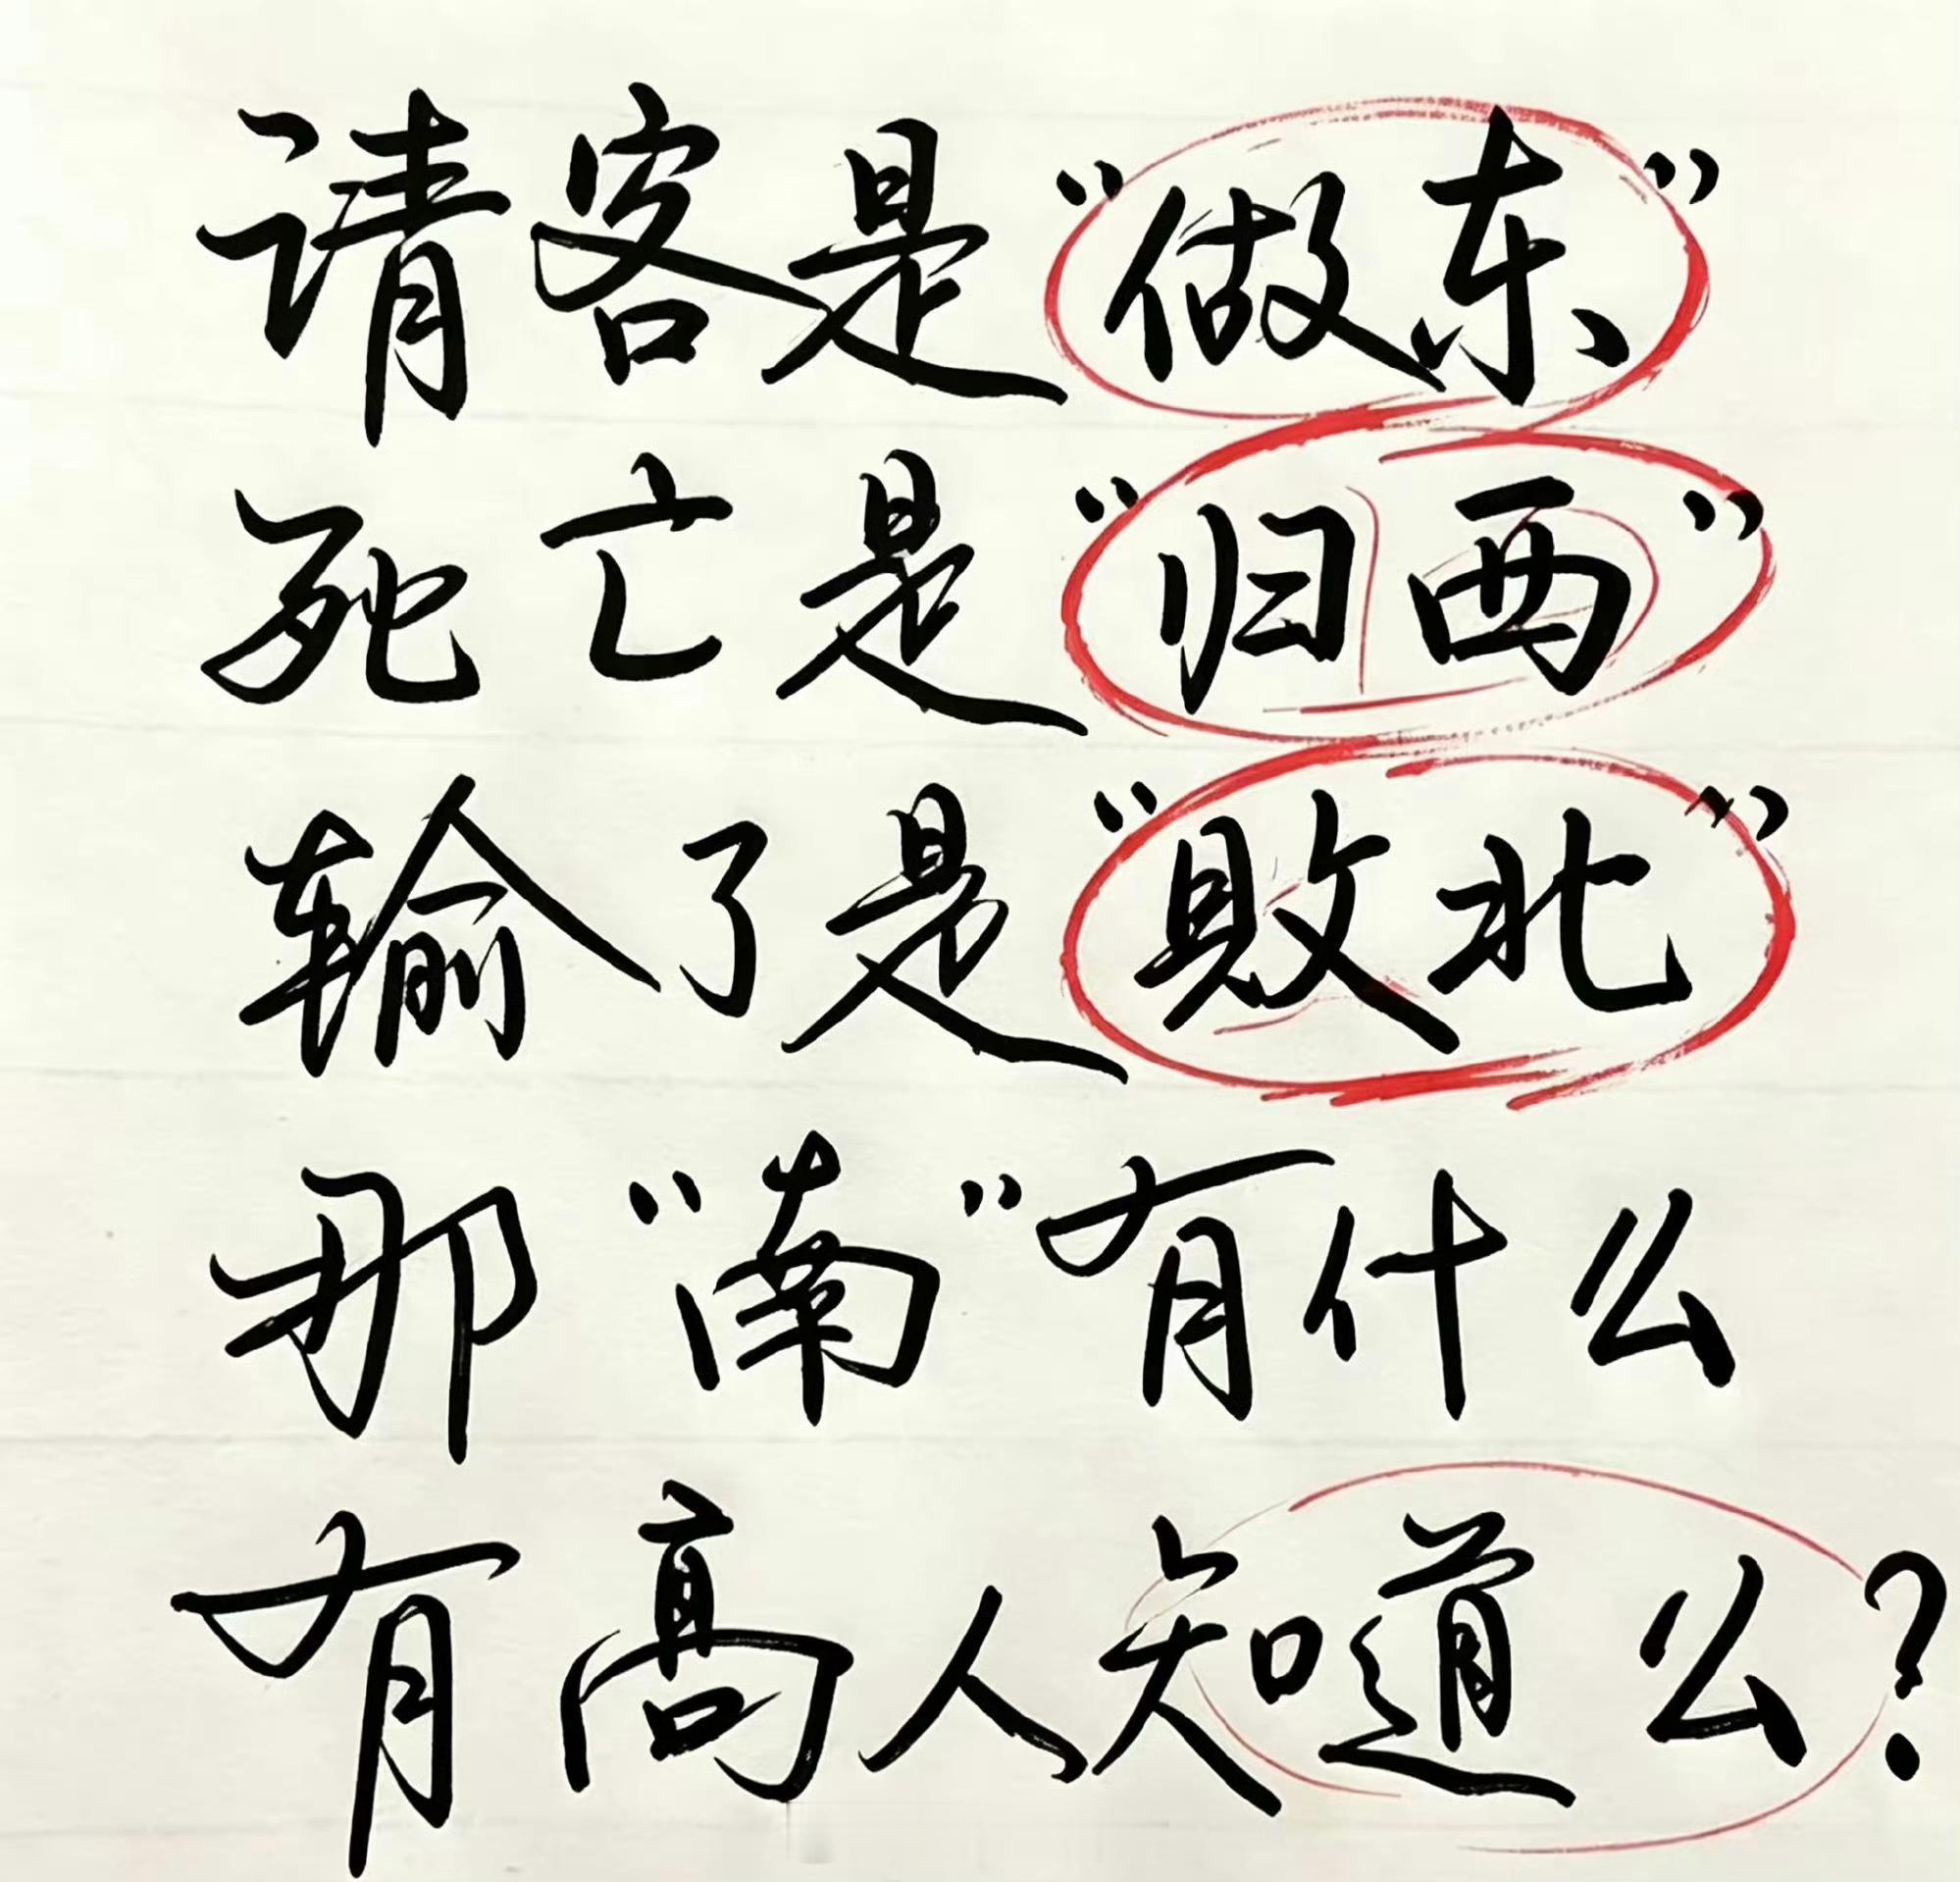 请客是“做东”
死亡是“归西”
输了是“敗北”
那“南“有什么
有高人知道么?